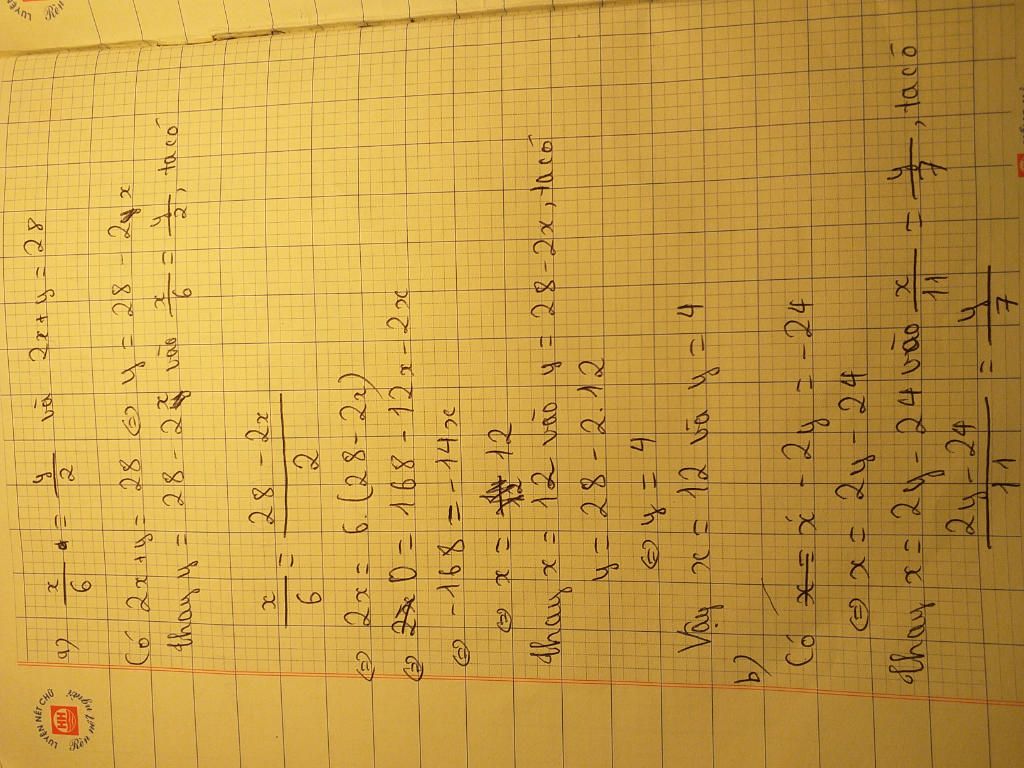 LUYỆN NÉT CHỮ
HH
Rèn nết người
a) x/6 = y/2 và 2x + y = 28
Có 2x + y = 28 ⇔ y = 28 - 2x
thay y = 28 - 2x vào x/6 = y/2, ta có
x/6 = (28 - 2x)/2
⇔ 2x = 6.(28 - 2x)
⇔ 0 = 168 - 12x - 2x
⇔ -168 = -14x
⇔ x = 12
thay x = 12 vào y = 28 - 2x, ta có
y = 28 - 2.12
⇔ y = 4
Vạy x = 12 và y = 4
b)
Có x - 2y = -24
⇔ x = 2y - 24
thay x = 2y - 24 vào x/11 = y/7, ta có
(2y - 24)/11 = y/7